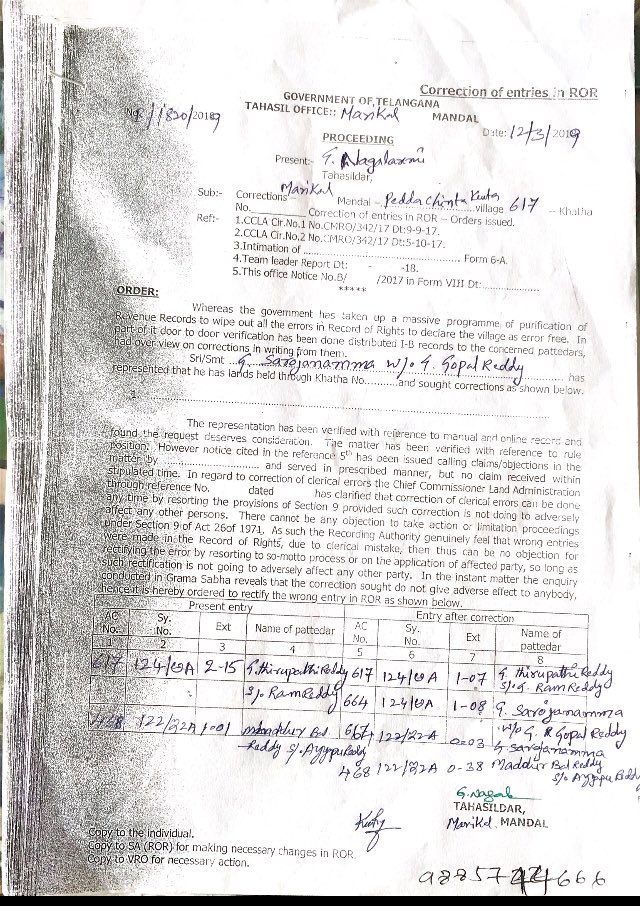 Correction of entries in ROR
GOVERNMENT OF TELANGANA
TAHASIL OFFICE:: Marikal MANDAL
/1820/2019 Date: 12/3/2019
PROCEEDING
Present:- G. Nagalaxmi
Tahasildar,
Sub:- Corrections – Marikal Mandal – Pedda Chinta Kunta Village 617 -- Khatha
No. Correction of entries in ROR – Orders issued.
Ref:- 1.CCLA Cir.No.1 No.CMRO/342/17 Dt:9-9-17.
2.CCLA Cir.No.2 No.CMRO/342/17 Dt:5-10-17.
3.Intimation of ........................ Form 6-A.
4.Team leader Report Dt: - -18.
5.This office Notice No.B/ /2017 in Form VIII Dt:...............
*****
ORDER:
Whereas the government has taken up a massive programme of purification of
Revenue Records to wipe out all the errors in Record of Rights to declare the village as error free. In
part of it door to door verification has been done distributed I-B records to the concerned pattedars,
had over view on corrections in writing from them.
Sri/Smt G. Sarojanamma w/o G. Gopal Reddy has
represented that he has lands held through Khatha No...........and sought corrections as shown below.
1.
The representation has been verified with reference to manual and online record and
found the request deserves consideration. The matter has been verified with reference to rule
position. However notice cited in the reference 5th has been issued calling claims/objections in the
matter by ........................ and served in prescribed manner, but no claim received within
stipulated time. In regard to correction of clerical errors the Chief Commissioner Land Administration
through reference No. dated has clarified that correction of clerical errors can be done
any time by resorting the provisions of Section 9 provided such correction is not doing to adversely
affect any other persons. There cannot be any objection to take action or limitation proceedings
under Section 9 of Act 26of 1971. As such the Recording Authority genuinely feel that wrong entries
were made in the Record of Rights, due to clerical mistake, then thus can be no objection for
rectifying the error by resorting to so-motto process or on the application of affected party, so long as
such rectification is not going to adversely affect any other party. In the instant matter the enquiry
conducted in Grama Sabha reveals that the correction sought do not give adverse effect to anybody,
hence it is hereby ordered to rectify the wrong entry in ROR as shown below.
Present entry Entry after correction
AC No. Sy. No. Ext Name of pattedar AC No. Sy. No. Ext Name of pattedar
1 2 3 4 5 6 7 8
617 124/ 2-15 G. thirupathi Reddy 617 124/ 1-07 G. thirupathi Reddy
S/o Ram Reddy S/o G. Ram Reddy
664 124/ 1-08 G. Sarojanamma
w/o G. R Gopal Reddy
468 122/22A 1-01 Maddur Bal 617 122/22A 0-03 G. Sarojanamma
Reddy S/o Ayyapu Reddy
468 122/22A 0-38 Maddur Bal Reddy
S/o Ayyapu Reddy
G. Nagal
TAHASILDAR,
Marikal. MANDAL
Copy to the individual.
Copy to SA (ROR) for making necessary changes in ROR
Copy to VRO for necessary action.